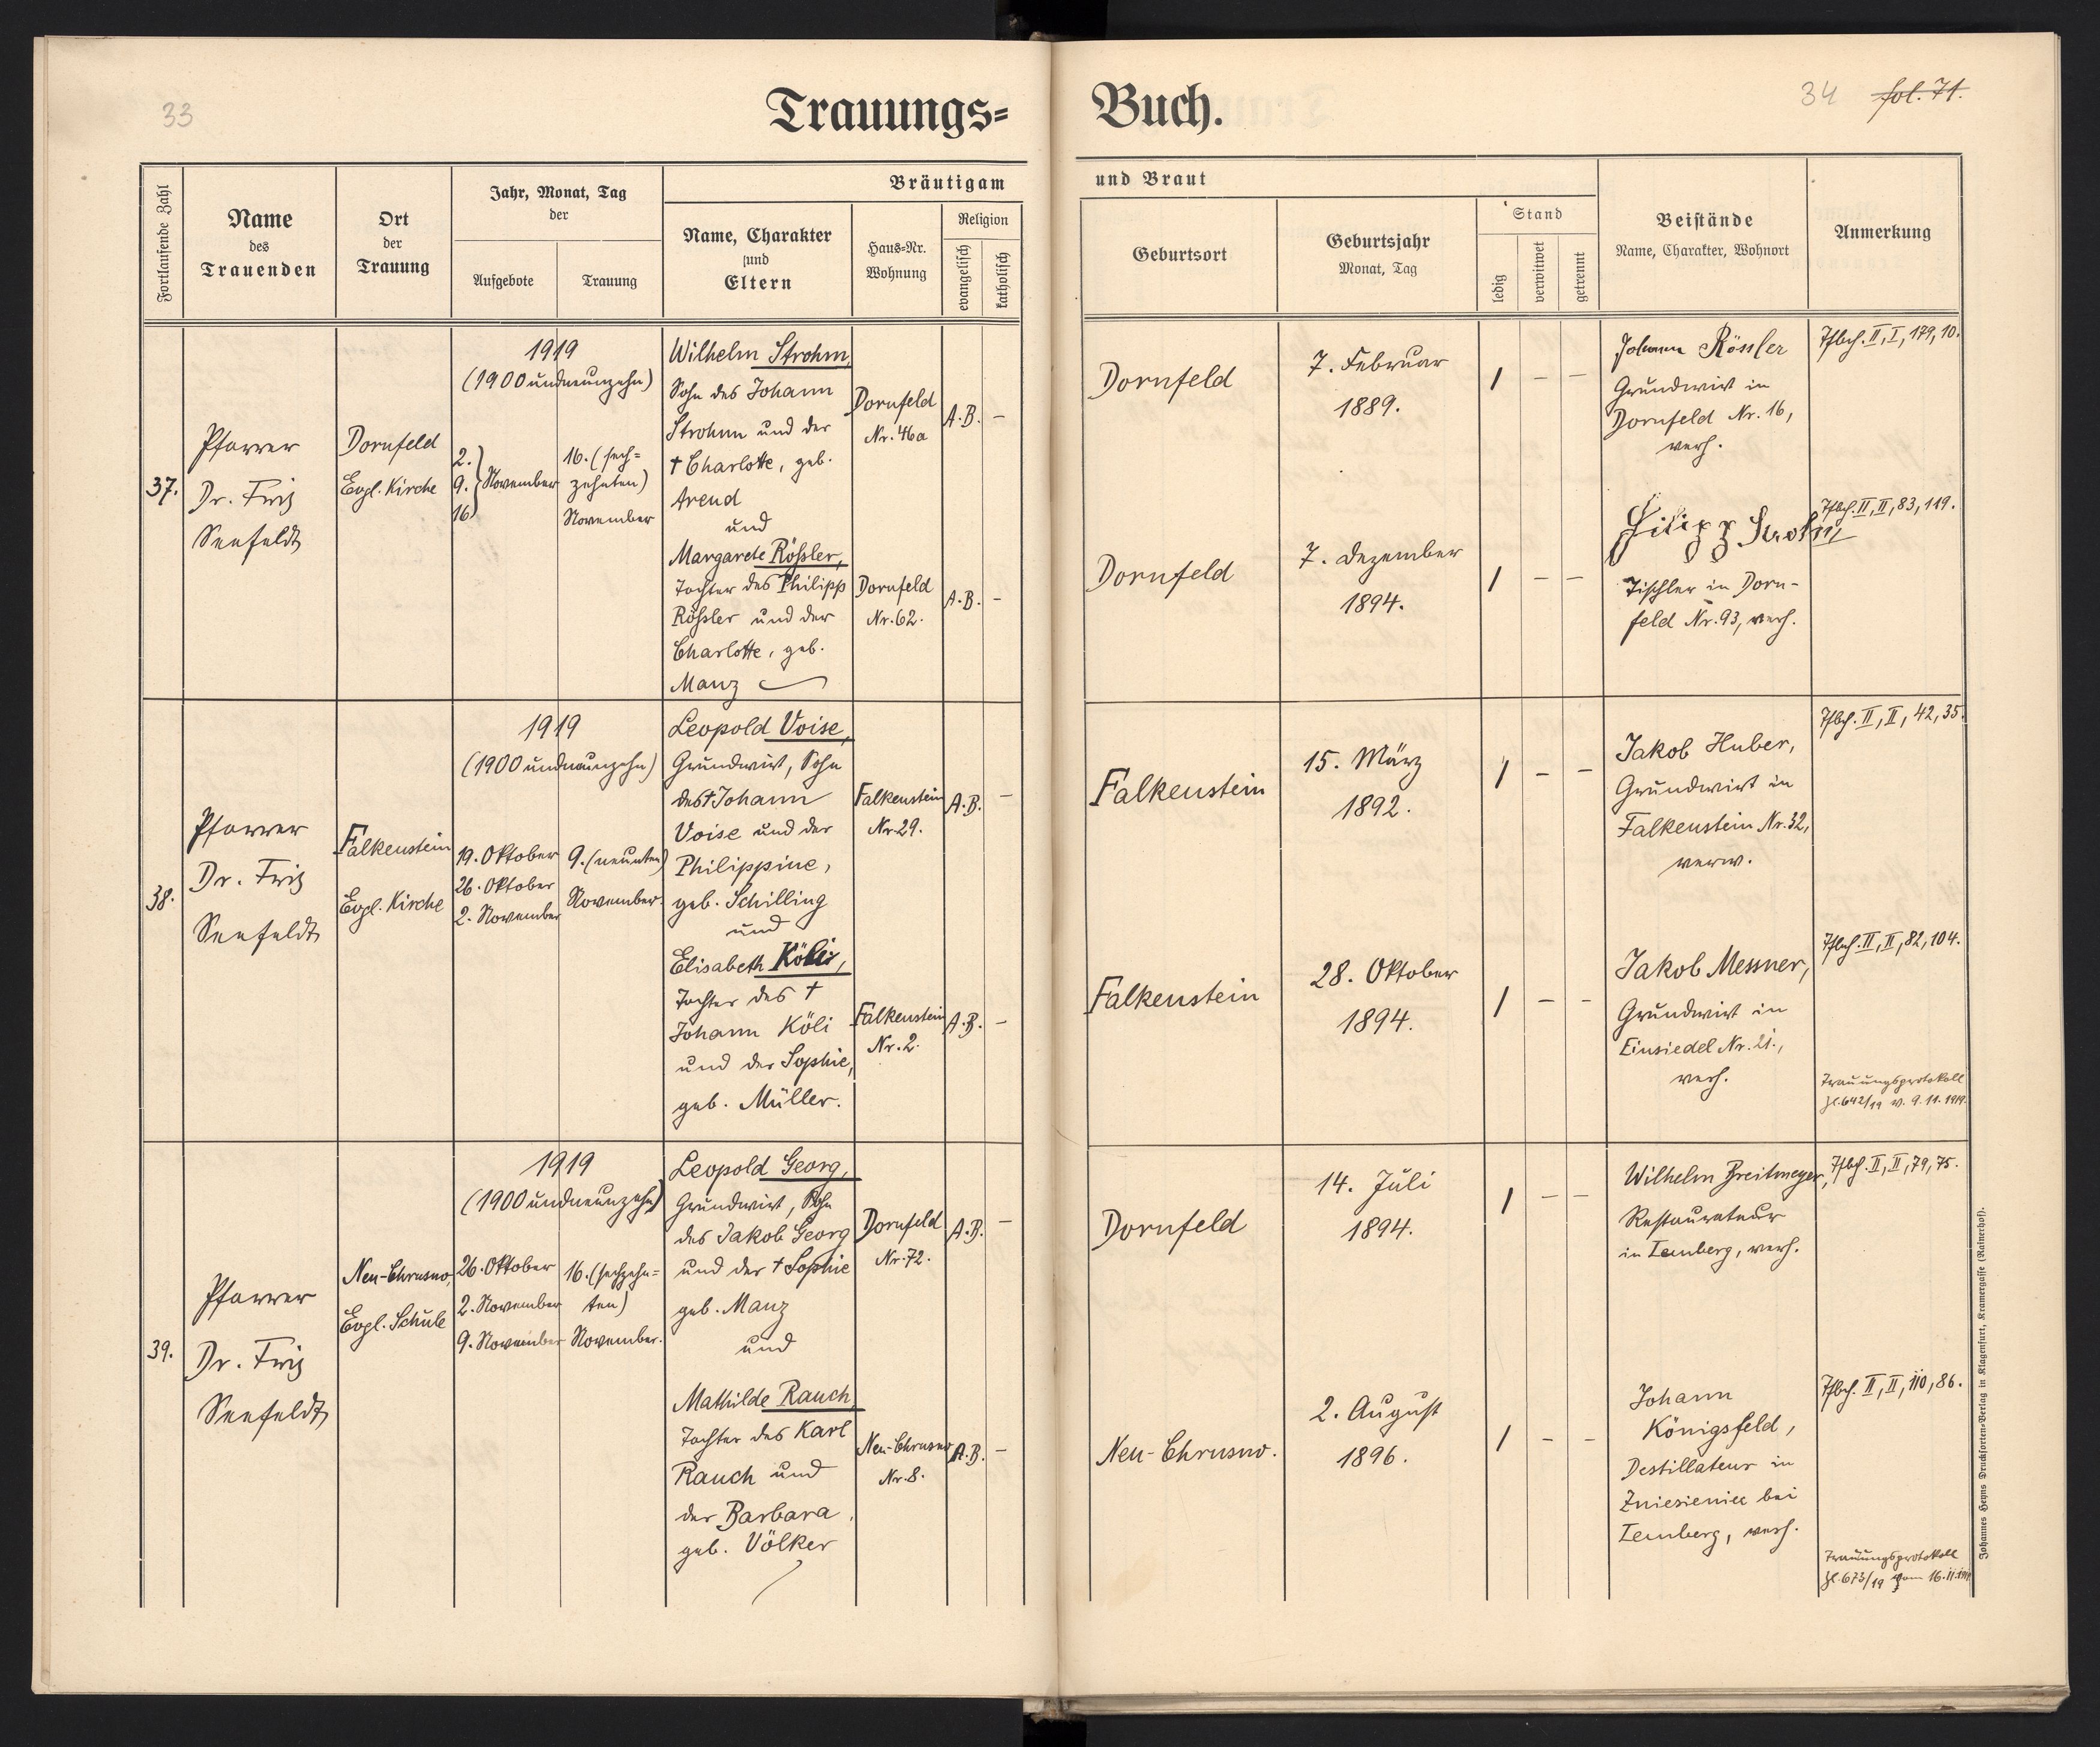 33
Trauungs=
Buch.
34 fol. 71.
Fortlaufende Zahl
Name
des
Trauenden
Ort
der
Trauung
Jahr, Monat, Tag
der
Aufgebote
Trauung
Bräutigam
Name, Charakter
und
Eltern
Haus=Nr.
Wohnung
Religion
evangelisch
katholisch
und Braut
Geburtsort
Geburtsjahr
Monat, Tag
Stand
ledig
verwitwet
getrennt
Beistände
Name, Charakter, Wohnort
Anmerkung
37.
Pfarrer
Dr. Fritz
Seefeldt
Dornfeld
Evgl. Kirche
1919
(1900 undneunzehn)
2.
9. November
16.
16. (sech=
zehnten)
November
Wilhelm Strohm,
Sohn des Johann
Strohm und der
† Charlotte, geb.
Arend
und
Margarete Rößler,
Tochter des Philipp
Rößler und der
Charlotte, geb.
Manz
Dornfeld
Nr. 46a
A.B. –
Dornfeld
Nr. 62.
A.B. –
Dornfeld
7. Februar
1889.
/ – –
Dornfeld
7. Dezember
1894.
/ – –
Johann Rössler
Grundwirt in
Dornfeld Nr. 16,
verh.
Filipp Strohm
Tischler in Dorn-
feld Nr. 93, verh.
Tfbch. II, I, 179, 10.
Tfbch. II, II, 83, 119.
38.
Pfarrer
Dr. Fritz
Seefeldt
Falkenstein
Evgl. Kirche
1919
(1900 undneunzehn)
19. Oktober
26. Oktober
2. November
9. (neunten)
November.
Leopold Voise,
Grundwirt, Sohn
des † Johann
Voise und der
Philippine,
geb. Schilling
und
Elisabeth Köli,
Tochter des †
Johann Köli
und der Sophie,
geb. Müller.
Falkenstein
Nr. 29.
A.B. –
Falkenstein
Nr. 2.
A.B. –
Falkenstein
15. März
1892.
/ – –
Falkenstein
28. Oktober
1894.
/ – –
Jakob Huber,
Grundwirt in
Falkenstein Nr. 32,
verw.
Jakob Messner,
Grundwirt in
Einsiedel Nr. 21.,
verh.
Tfbch. II, II, 42, 35.
Tfbch. II, II, 82, 104.
Trauungsprotokoll
Zl. 642/19 v. 9. 11. 1919.
39.
Pfarrer
Dr. Fritz
Seefeldt
Neu-Chrusno,
Evgl. Schule
1919
(1900 undneunzehn)
26. Oktober
2. November
9. November
16. (sechzehn=
ten)
November.
Leopold Georg,
Grundwirt, Sohn
des Jakob Georg
und der † Sophie
geb. Manz
und
Mathilde Rauch,
Tochter des Karl
Rauch und
der Barbara,
geb. Völker
Dornfeld
Nr. 72.
A.B. –
Neu-Chrusno
Nr. 8.
A.B. –
Dornfeld
14. Juli
1894.
/ – –
Neu-Chrusno.
2. August
1896.
/ – –
Wilhelm Breitmeyer,
Restaurateur
in Lemberg, verh.
Johann
Königsfeld,
Destillateur in
Zniesienie bei
Lemberg, verh.
Tfbch. II, II, 79, 75.
Tfbch. II, II, 110, 86.
Trauungsprotokoll
Zl. 673/19 vom 16. 11. 1919
Johannes Heyns Drucksorten=Verlag in Klagenfurt, Kramergasse (Rainerhof).